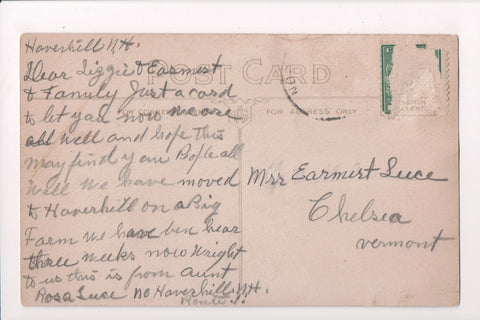 Haverhill N.H.
Dear Lizzie & Earnest
& Family Just a card
to let you now we are
all well and hope this
may find you Pople all
well We have moved
to Haverhill on a Big
Farm we have ben hear
three weeks now Wright
to us this is from Aunt
Rosa Luce no Haverhill N.H.
Route 1.
POST CARD
FOR ADDRESS ONLY
Mrs Earnest Luce
Chelsea
Vermont